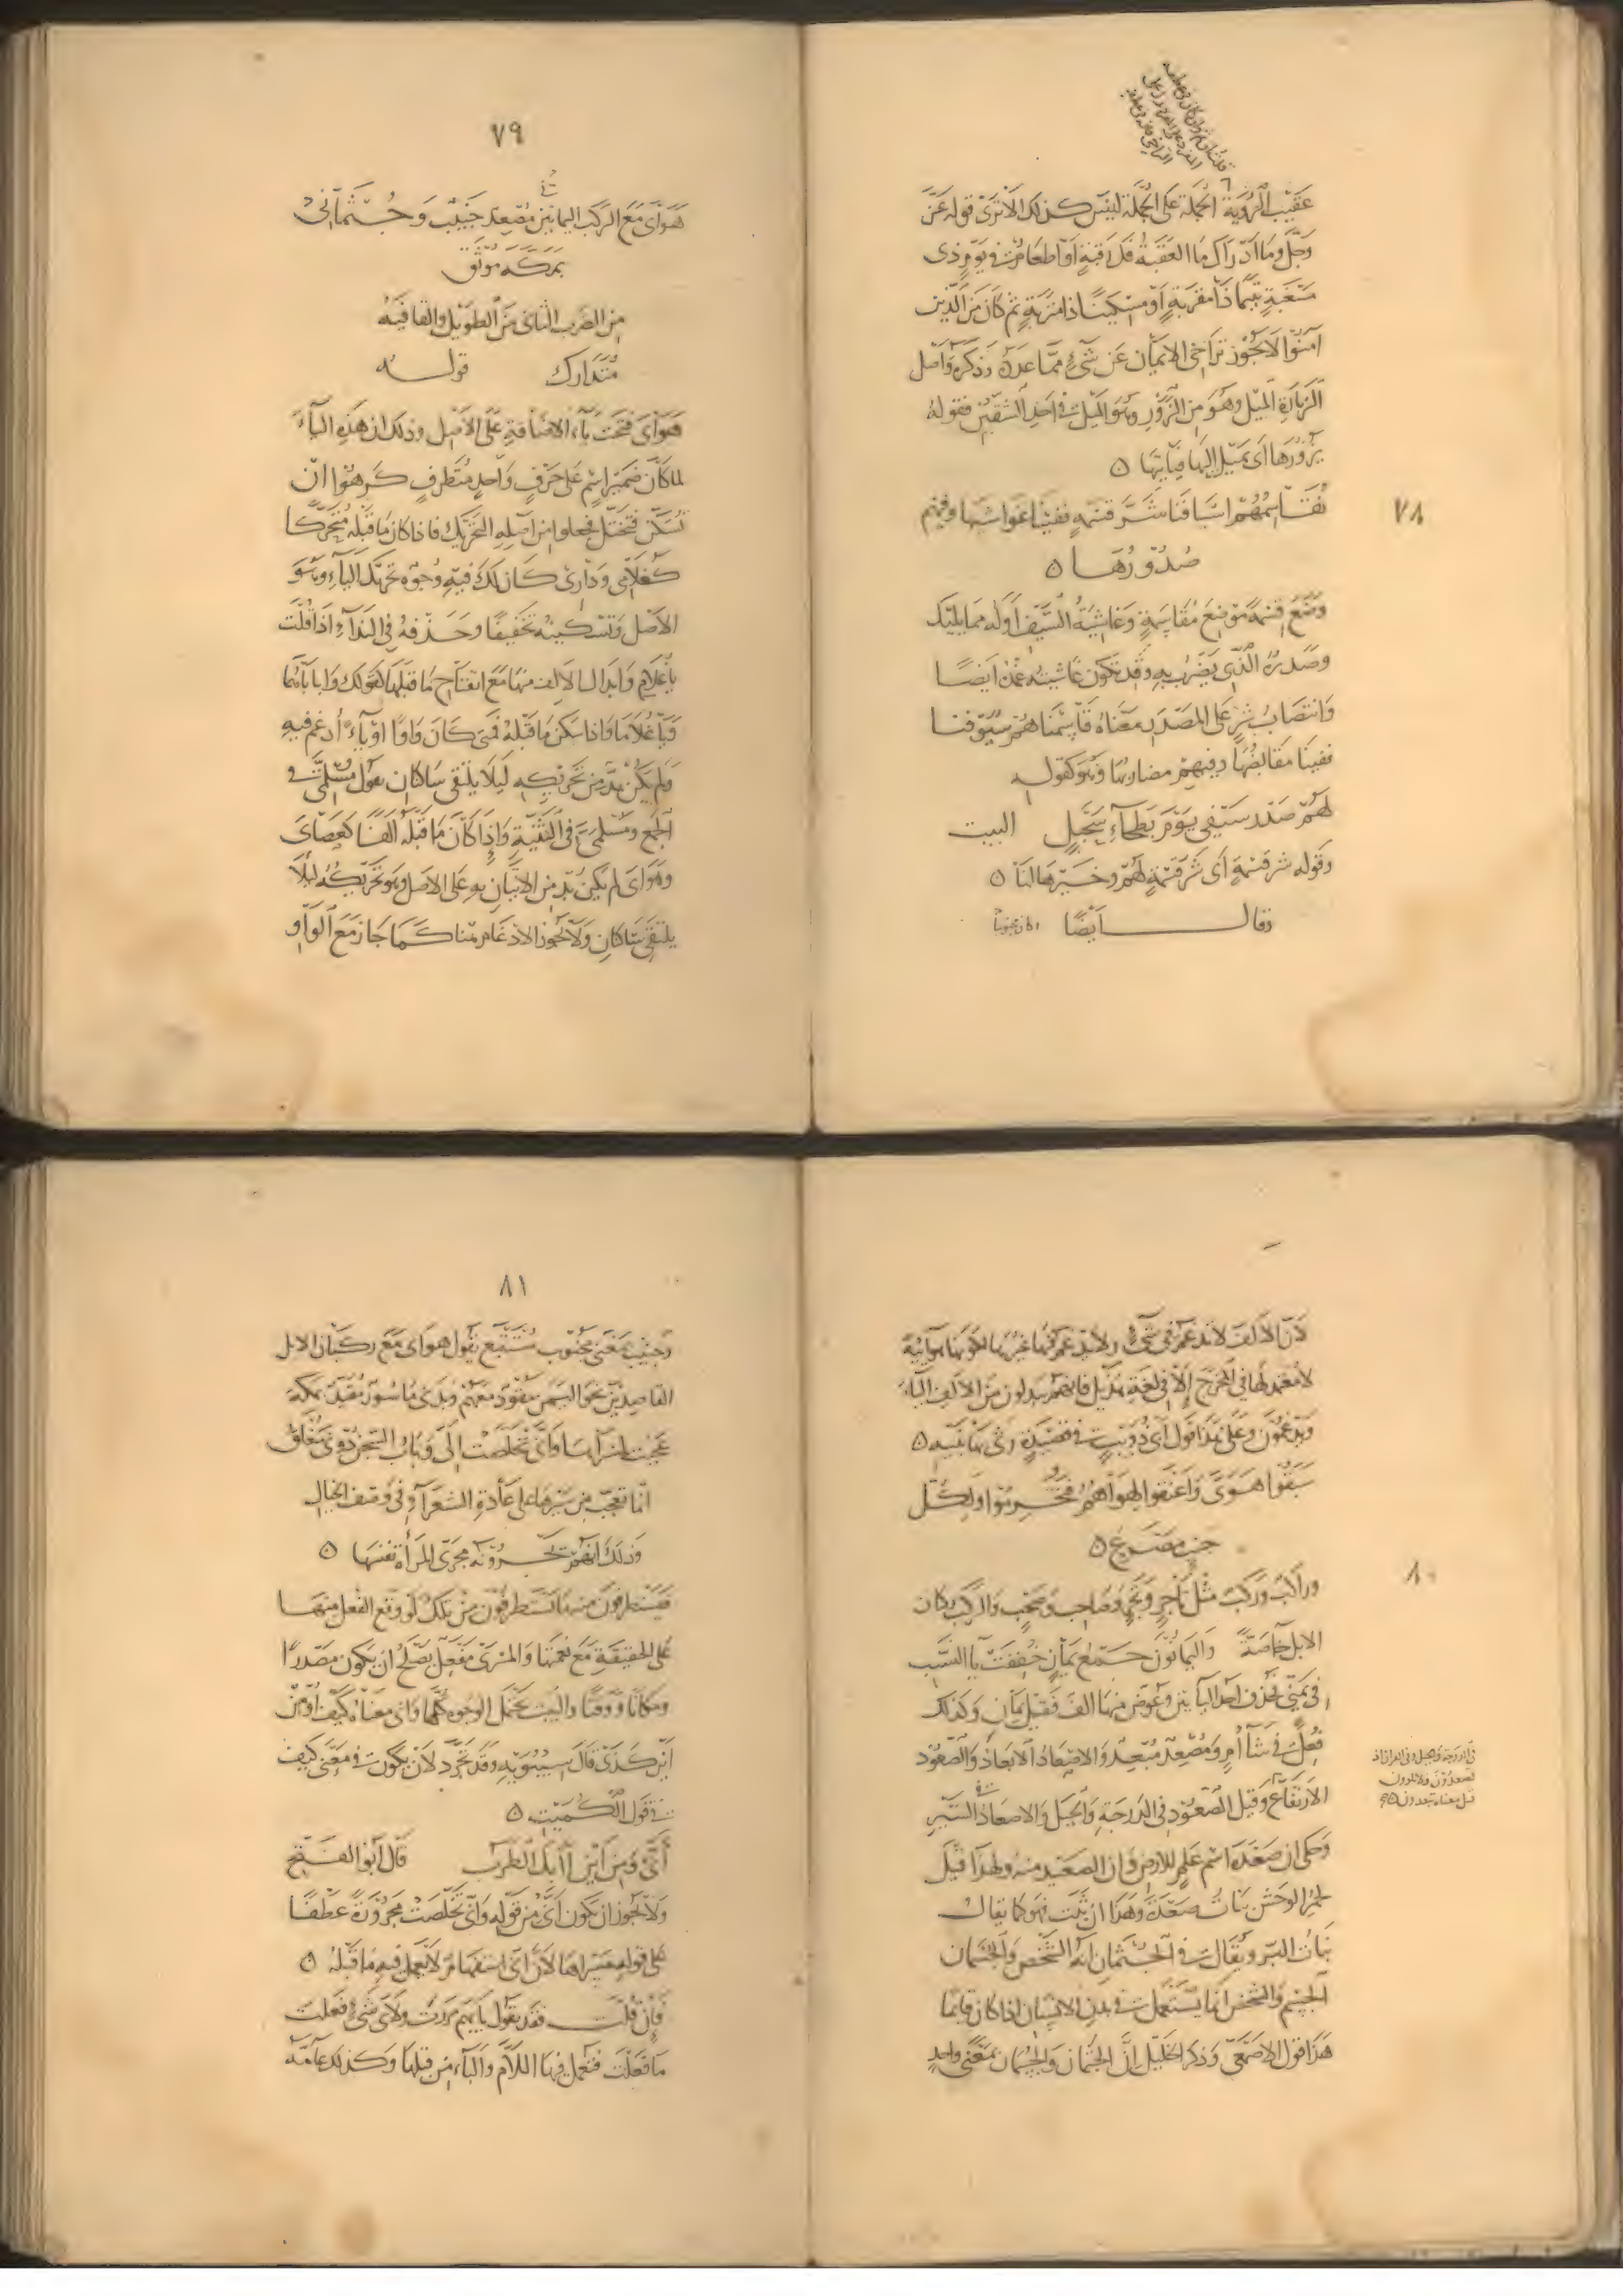 عَقِيْبَ الرُّؤيَة الجُملة عَلى الجُملة لَيْسَ كذلك الا تَرَى قوله عَزَّ
وَجَلَّ وَمَا ادْرَاكَ مَا العَقَبَةُ فَكُّ رَقَبَةٍ اَوْ اطعَامٌ في يَوْمٍ ذى
مَسْغَبَةٍ يَتِيْمًا ذَا مَقْرَبَةٍ اَوْ مِسْكِيْنًا ذا مَتْرَبَةٍ ثم كَانَ مِنَ الَّذين
آمَنُوْا لا يَجُوْز تَرَاخى الايمَان عَن شَىْءٍ ممَّا عَدَّهُ وَذكرَه وَاَصْل
الزيَارَةِ المَيْل وهُوَ مِنَ الزَّوَرِ وهُوَ المَيْل في احَدِ الشقَّيْن فقوله
يَزُوْرُهَا اى يَمِيْل اِليهَا فيَاتيهَا
٧٨
نُقَاسِمُهُمْ اسْيَافَنَا شَرَّ قِسْمَةٍ ففينَا غَوَاشيْهَا وَفيْهِم
صُدُوْرُهَا
وَضَعَ قِسْمَةً مَوْضِعَ مُقَاسَمَةٍ وَغَاشِيَةُ السَّيْفِ اَوَّلُه ممَا يليْكَ
وَصَدْرُهُ الَّذِى يُضْرَبُ بِهِ وَقَد تَكون غَاشيَتُه غِمْدَه اَيضًا
وَانتصَابُ شَرَّ عَلى المَصْدَرِ مَعْنَاهُ قَاسَمْنَاهُمْ سيُوْفنا
ففيْنَا مَقَابِضُهَا وفيهِمْ مضاربُهَا وهُوَ كقوله
لهُمْ صَدْرُ سَيْفى يَوْمَ بَطْحَاءِ سَحْبَلٍ البيت
وَقوله شر قسْمَةٍ اَى شَرَّ قِسْمَةٍ لهُمْ وخَيْرهَا لنَا
وقال اَيْضًا وكان محبوسًا
٧٩
هَوَاىَ مَعَ الرَّكْبِ اليمانيْنَ مُصْعِدٌ جَنيْبٌ وَجُثْمَانى
بمَكّةَ مُوْثَقُ
مِن الضَّرب الثانى مِنَ الطَّوِيْل والقَافيَة
مُتَدَارك قوله
هَوَاىَ فُتحَت يَاءُ الاضَافةِ عَلى الاَصْل وَذلك ان هَذِهِ اليَاءَ
لمَا كَانَ ضَميْر اسْمٍ عَلى حَرْفٍ وَاحدٍ مُتَطَرفٍ كَرِهُوْا ان
تُسَكَّنَ فتختل فجعلوا مِن اَصْلِهِ التحْرِيْك فاذا كان مَا قَبْلهُ مُتَحَرِّكًا
كَغُلَامِى وَدَارِى كَان لَكَ فيْهِ وُجُوْه تحريك اليَاءِ وهُوَ
الاَصْل وَتَسْكيْنه تخفيْفًا وحَذفه فى النِّدَاءِ اذا قُلْتَ
يَا غُلَامِ وَابْدَال الالِف منهَا مَعَ انفتَاح مَا قَبْلهَا كَقولك وَا بابَاهُمَا
وَيَا غُلَامَا وَاذا سَكنَ مَا قَبْلَهُ فَمَتى كَانَ وَاوًا اوْ يَاءً اُدغم فيهِ
وَلم يَكُنْ بُدٌّ مِن تَحْرِيْكِهِ لِيَلَا يَلتقى سَاكنَان يقول مُسْلِمِىَّ فى
الجَمْع وَمُسْلِمَىَّ فى التَّثنيَةِ وَاِذَا كَانَ مَا قَبْلَهُ اَلِفًا كَعَصَاىَ
وَهَوَاىَ لم يكنْ بُدٌّ مِن الاِتْيَانِ بهِ عَلى الاَصل وهُوَ تَحْرِيكُه ليْلَا
يلتقى سَاكنَانِ وَلَا يَجُوْز الاِدْغَام هُنَا كَمَا جَازَ مَعَ الوَاو
لانَّ الالف لا تُدْغم فى شَىْءٍ ولا يُدْغم فيْهَا غيرُهَا لكَوْنِهَا هوَائيَّة
لا مُعْتَمد لهَا فى المَخرَج اِلَّا فى لغَةِ هُذَيْل فانهم يُبْدِلون مِنَ الالِفِ اليَاءَ
وَيُدْغِمُوْنَ وَعَلى هذَا قول اَبى ذُؤَيْبٍ فى قصيْدَةٍ رَثى بهَا بَنيْهِ
سَبَقُوْا هَوَىَّ وَاَعْنَقوا لِهَوَاهُمُ فَتُخُرِّمُوْا ولِكُلِّ
جَنبٍ مَصْرَعُ
٨٠
وَرَاكبٌ وَرَكْبٌ مِثْل تَاجرٍ وَتَجْرٍ وَصَاحبٍ وَصَحْبٍ وَالرَّكْب رُكبَان
الابل خَاصَّةً وَاليَمَانُوْنَ جَمْعُ يَمَانٍ خُفِّفَت يَا النسَب
فى يَمَنِىّ بحَذف احدى اليَاءَيْن وَعُوّضَ مِنهَا الف فَقيْل يَمَان وَكذلك
فُعِلَ فى شَآمٍ وَمُصْعِدٌ مُبْعِدٌ وَالاصْعَادُ الابعَاد وَالصُّعُوْد
الارْتفَاع وَقيل الصُّعُوْد فى الدَرَجَةِ وَالجَبَل وَالاصعَاد فى السَّيْرِ
وَحكى ان صَعْدَة اسْم عَلم للارض وَان الصَّعِيْد مِنْه وَلهذَا قيْلَ
لحُمُر الوحشِ بَنَاتُ صَعْدَةَ وَهَذَا ان ثَبَتَ فهُوَ كمَا يقال
بَنَاتُ البَر وَيُقَال فى الجُثمان انهُ الشَّخْص وَالجُسْمَان
الجسْم وَالشخص انّمَا يُسْتَعْمل فى بَدَنِ الانسَان اذا كَان قَايمًا
هَذَا قول الاَصْمَعى وَذكر الخَليْل اِنَّ الجُثمان وَالجُسْمَان بمَعْنًى وَاحدٍ
فى الدرجة والجبل وفى القرآن اذ
تصعدون ولا تلوون
قيل معناه تبعدون
٨١
وَجَنيْب بمَعْنى مَجْنُوْب مُسْتَتْبَع يَقُول هوَاى مَعَ رُكبَان الابل
القَاصِدِيْنَ نحوَ اليَمَن مَقُوْدٌ مَعَهُمْ وَبَدَنى مَاسُوْرٌ مُقَيَّدٌ بمَكّةَ
عَجبْتُ لمَسْرَاهَا وَاَنَّى تَخَلَّصَتْ اِلىَّ وَبَابُ السِّجْن دُوْنى مُغْلَق
انّمَا تعَجَّبَ مِن سَيْرِهَا عَلى عَادَةِ الشُّعَرَاءِ فى وَصْف الخيَال
وَذلكَ انَّهُمْ يُجْرُوْنَه مجرَى المرأة نفسِهَا
فَيَسْتَطرفُوْنَ مِنْه مَا يُسْتَطرَفُ مِنْ تلك لَوْ وَقَع الفعل منهَا
عَلى الحقيقَةِ مَعَ نعْمَتِهَا وَالمَسْرَى مَفْعَلٌ يَصْلُحُ ان يَكون مَصْدَرًا
ومَكَانًا وَوَقتًا وَالبَيْت يَحْتمل الوُجُوه كلَّهَا وَاَنى مَعْنَاهُ كَيْفَ اَوْ مِن
اَيْنَ كَذَى قَالَ سِيْبَوَيْه وَقَد تُجَرَّد لاَن يكون فى مَعْنى كيف
فى قول الكميت
اَنَّى وَمِن اَيْنَ آبَكَ الطَّرَبُ قَالَ ابُو الفَتْح
وَلا يَجُوْز ان تكون اَنّى مِن قوله وَاَنّى تَخَلَّصَت مَجْرُوْرَةً عَطْفًا
عَلى قوله لمَسْرَاهَا لاَنَّ اَنّى استفهَامٌ لا يَعمَل فيهِ مَا قَبْلهُ
فَاِن قُلْتَ فقَد يَقُول بايّهِم مَرَرْتَ ولاَىّ شَىْءٍ فَعَلتَ
مَا فَعَلْتَ فتُعْمِل فيهَا اللاَّم وَالبَاء مِن قبلِهَا وَكذلك عَامَّة